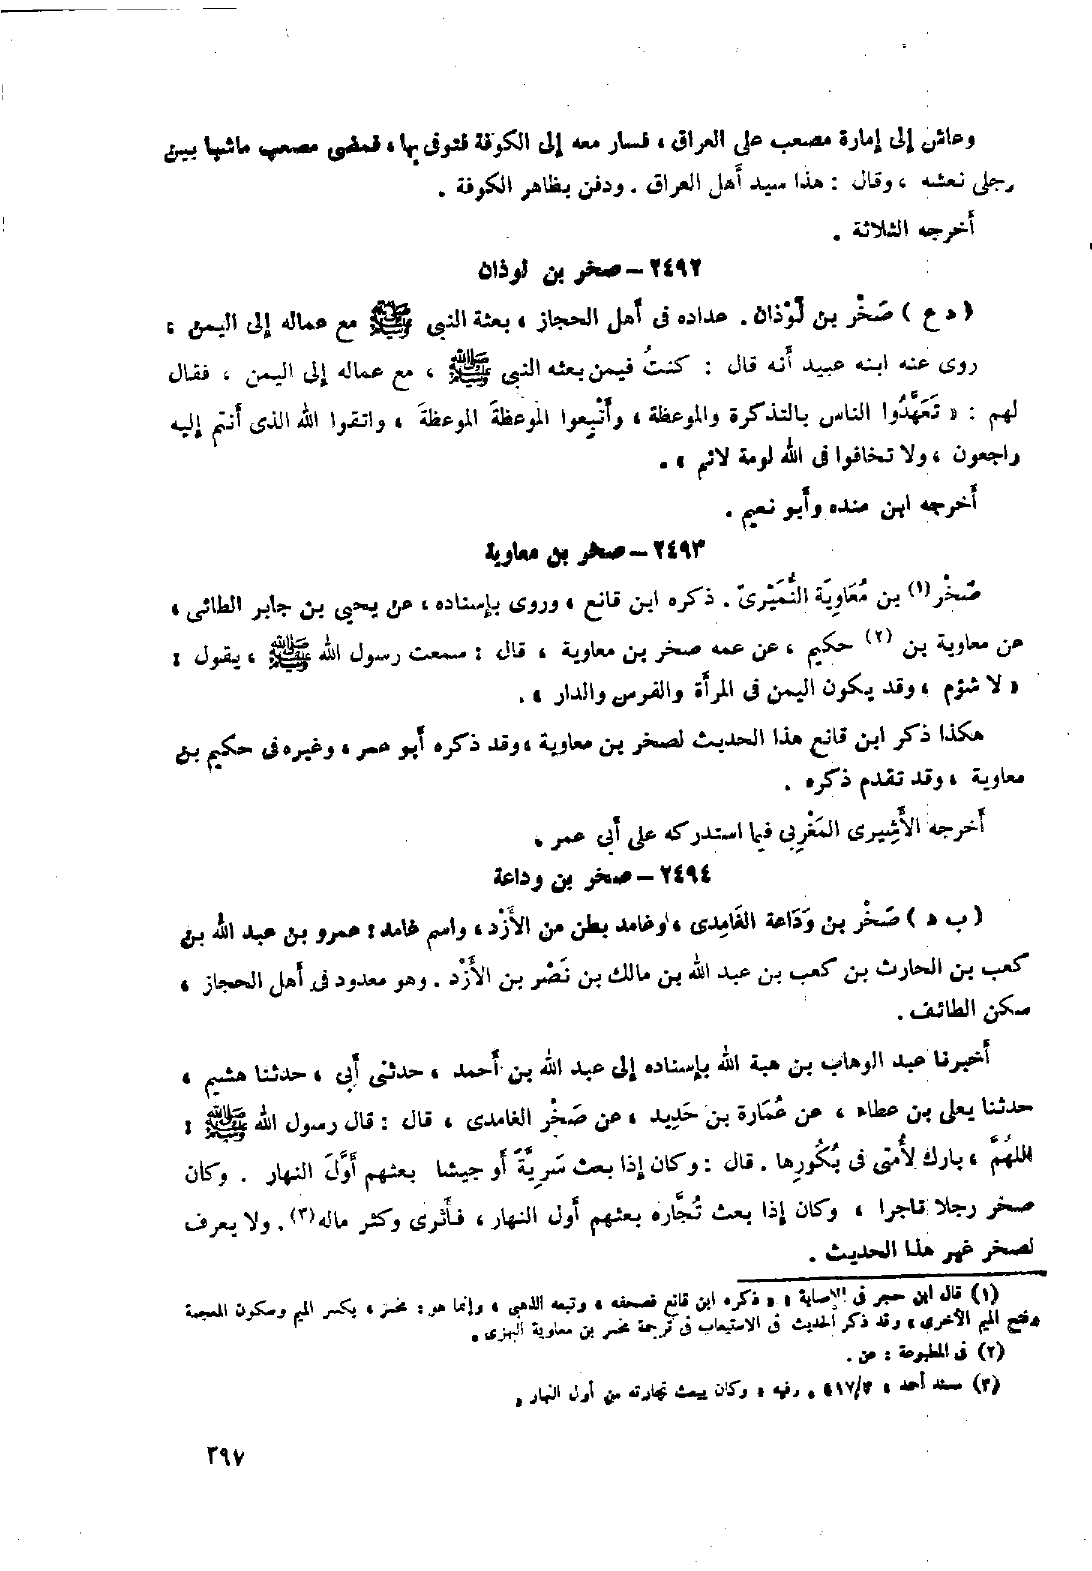 وعاش إلى إمارة مصعب على العراق ، فسار معه إلى الكوفة فتوفى بها ، فمضى مصعب ماشيا بين
رجلى نعشه ، وقال : هذا سيد أهل العراق . ودفن بظاهر الكوفة .
أخرجه الثلاثة .
٢٤٩٢ – صخر بن لوذان
( د ع ) صَخْر بن لَوْذان . عداده فى أهل الحجاز ، بعثة النبي ﷺ مع عماله إلى اليمن ،
روى عنه ابنه عبيد أنه قال : كنتُ فيمن بعثه النبي ﷺ ، مع عماله إلى اليمن ، فقال
لهم : « تَعَهَّدُوا الناس بالتذكرة والموعظة ، وأَتْبِعوا الموعظةَ الموعظةَ ، واتقوا الله الذى أنتم إليه
راجعون ، ولا تخافوا فى الله لومة لائم » .
أخرجه ابن منده وأبو نعيم .
٢٤٩٣ – صخر بن معاوية
صَخْر(١) بن مُعَاوِيَة النُّمَيْرىّ . ذكره ابن قانع ، وروى بإسناده ، عن يحيى بن جابر الطائى ،
عن معاوية بن (٢) حكيم ، عن عمه صخر بن معاوية ، قال : سمعت رسول الله ﷺ ، يقول :
« لا شؤم ، وقد يكون اليمن فى المرأة والفرس والدار » .
هكذا ذكر ابن قانع هذا الحديث لصخر بن معاوية ، وقد ذكره أبو عمر ، وغيره فى حكيم بن
معاوية ، وقد تقدم ذكره .
أخرجه الأَشِيرى المَغْرِبى فيما استدركه على أبى عمر .
٢٤٩٤ – صخر بن وداعة
( ب د ) صَخْر بن وَدَاعة الغَامِدى ، وغامد بطن من الأَزْد ، واسم غامد : عمرو بن عبد الله بن
كعب بن الحارث بن كعب بن عبد الله بن مالك بن نَصْر بن الأَزْد . وهو معدود فى أهل الحجاز ،
سكن الطائف .
أخبرنا عبد الوهاب بن هبة الله بإسناده إلى عبد الله بن أحمد ، حدثنى أبى ، حدثنا هشيم ،
حدثنا يعلى بن عطاء ، عن عُمَارة بن حَدِيد ، عن صَخْر الغامدى ، قال : قال رسول الله ﷺ :
اللهُمَّ ، بارك لأُمتى فى بُكُورِها . قال : وكان إذا بعث سَرِيَّةً أو جيشا بعثهم أَوَّلَ النهار . وكان
صخر رجلا تاجرا ، وكان إذا بعث تُجَّاره بعثهم أول النهار ، فأثرى وكثر ماله(٣) . ولا يعرف
لصخر غير هذا الحديث .
(١) قال ابن حجر فى الإصابة : « ذكره ابن قانع فصحفه ، وتبعه الذهبى ، وإنما هو : مخمر ، بكسر الميم وسكون المعجمة
وفتح الميم الأخرى ، وقد ذكر الحديث فى الاستيعاب فى ترجمة مخمر بن معاوية البهزى .
(٢) فى المطبوعة : عن .
(٣) مسند أحمد ، ٤١٧/٣ ، وفيه ، وكان يبعث تجارته من أول النهار .
٣٩٧